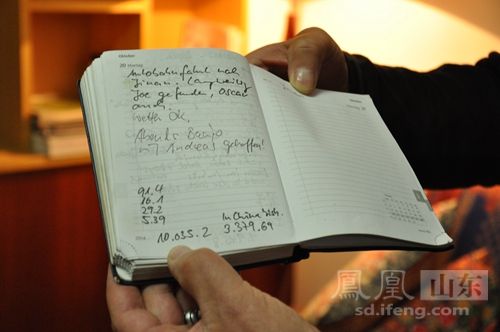 Oktober
20 Montag
Autobahnfahrt nach
Jinan. Langweilig
Joe gefunden, Oscar
auch.
Wetter OK,
Abends Banjo
mit Andreas getroffen!
91.4
16.1
29.2
5.39
10.035.2
In China bish.
3.379.69
凤凰 山东
sd.ifeng.com